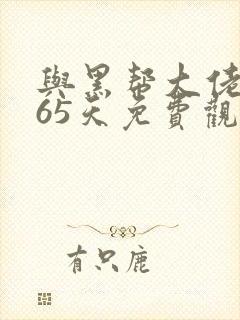 與黑帮大佬
65天免費觀
有只鹿